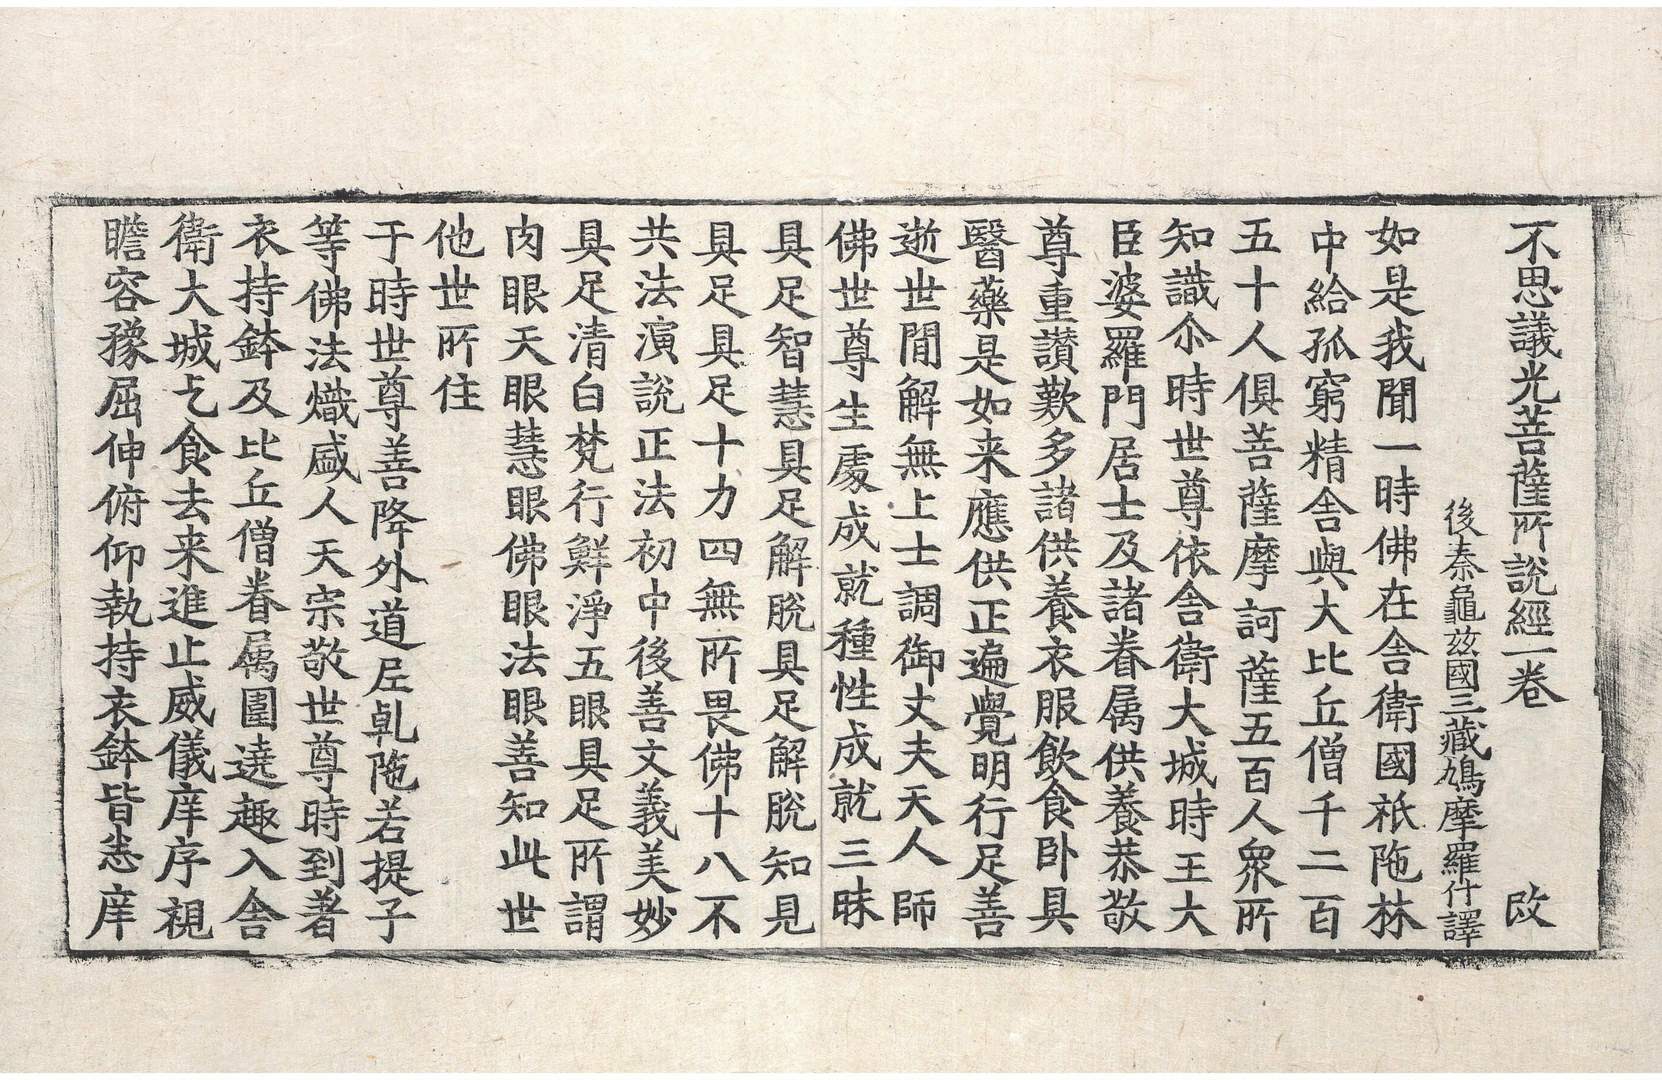 不思議光菩薩所說經一卷 改
後秦龜茲國三藏鳩摩羅什譯
如是我聞一時佛在舍衛國祇陁林
中給孤窮精舍與大比丘僧千二百
五十人俱菩薩摩訶薩五百人衆所
知識尒時世尊依舍衛大城時王大
臣婆羅門居士及諸眷属供養恭敬
尊重讃歎多諸供養衣服飮食卧具
醫藥是如来應供正遍覺明行足善
逝世閒解無上士調御丈夫天人師
佛世尊生處成就種性成就三昧
具足智慧具足解脫具足解脫知見
具足具足十力四無所畏佛十八不
共法演說正法初中後善文義美妙
具足清白梵行鮮淨五眼具足所謂
肉眼天眼慧眼佛眼法眼善知此世
他世所住
于時世尊善降外道尼乹陁若提子
等佛法熾盛人天宗敬世尊時到着
衣持鉢及比丘僧眷属圍遶趣入舍
衛大城乞食去来進止威儀庠序視
瞻容豫屈伸俯仰執持衣鉢皆悉庠